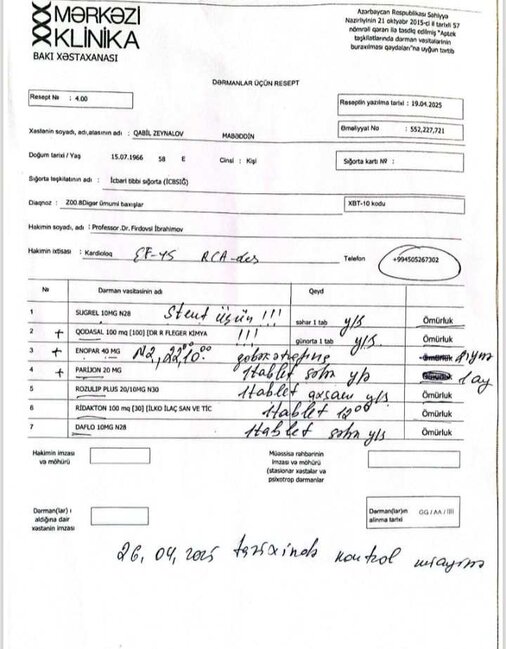 MƏRKƏZİ
KLİNİKA
BAKI XƏSTAXANASI
Azərbaycan Respublikası Səhiyyə
Nazirliyinin 21 oktyabr 2015-ci il tarixli 57
nömrəli qərarı ilə təsdiq edilmiş "Aptek
təşkilatlarında dərman vasitələrinin
buraxılması qaydaları"na uyğun tərtib
DƏRMANLAR ÜÇÜN RESEPT
Resept № : 4.00
Reseptin yazılma tarixi : 19.04.2025
Xəstənin soyadı, adı,atasının adı : QABİL ZEYNALOV MABƏDDİN
Əməliyyat No : 552,227,721
Doğum tarixi / Yaş 15.07.1966 58 E Cinsi : Kişi
Sığorta kartı NR :
Sığorta təşkilatının adı : İcbari tibbi sığorta (İCBSİĞ)
Diaqnoz : Z00.8Digər ümumi baxışlar
XBT-10 kodu
Həkimin soyadı, adı : Professor.Dr. Firdovsi İbrahimov
Həkimin ixtisası : Kardioloq EF-45 RCA-des
Telefon +994505267302
№ Dərman vasitəsinin adı Qeyd
1 SUGREL 10MG N28 Stent üçün !!! səhər 1 tab y/s Ömürlük
2 + QODASAL 100 mq [100] [DR R FLEGER KİMYA !!! günorta 1 tab y/s. Ömürlük
3 + ENOPAR 40 MG N2, 22 10.00
4 + PARİJON 20 MG 1tablet səhər 1 ay
5 ROZULIP PLUS 20/10MG N30 1tablet axşam y/s Ömürlük
6 RİDAKTON 100 mq [30] [İLKO İLAÇ SAN VE TİC 1tablet 12 00 Ömürlük
7 DAFLO 10MG N28 1tablet səhər y/s Ömürlük
Həkimin imzası
və möhürü
Müəssisə rəhbərinin
imzası və möhürü
(stasionar xəstələr və
psixotrop dərmanlar
Dərman(lar) ı
aldığına dair
xəstənin imzası
Dərman(lar)ın
alınma tarixi
GG / AA / İİİİ
26, 04, 2025 tarixində kontrol